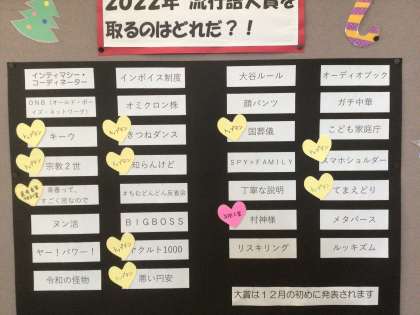 2022年 流行語大賞を
取るのはどれだ?!
インティマシー・
コーディネーター
インボイス制度
大谷ルール
オーディオブック
OBN(オールド・ボー
イズ・ネットワーク)
オミクロン株
顔パンツ
ガチ中華
キーウ
きつねダンス
国葬儀
こども家庭庁
宗教2世
知らんけど
SPY×FAMILY
スマホショルダー
青春って、
すごく密なので
ちむどんどん反省会
丁寧な説明
てまえどり
ヌン活
BIGBOSS
村神様
メタバース
ヤー!パワー!
ヤクルト1000
リスキリング
ルッキズム
令和の怪物
悪い円安
大賞は12月の初めに発表されます